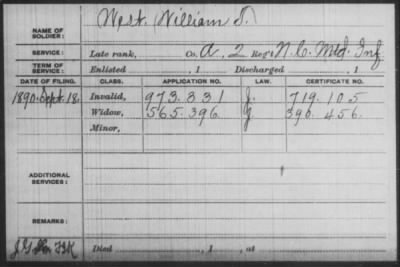 NAME OF SOLDIER: West, William S.
SERVICE: Late rank, Co. A, 2 Reg't N.C. Mtd. Inf
TERM OF SERVICE: Enlisted , 1 Discharged , 1
DATE OF FILING. CLASS. APPLICATION NO. LAW. CERTIFICATE NO.
1890. Sept. 18, Invalid, 973.831 J. 719.105
Widow, 565.396 396.456.
Minor,
ADDITIONAL SERVICES:
REMARKS:
Died , 1 , at